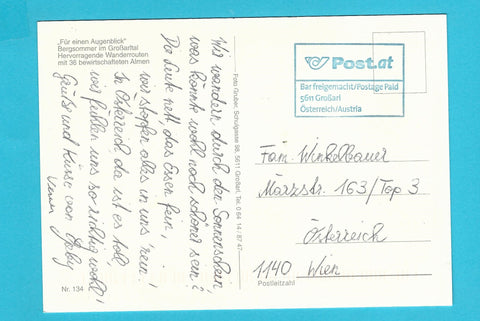 „Für einen Augenblick"
Bergsommer im Großarltal
Hervorragende Wanderrouten
mit 36 bewirtschafteten Almen
Wir wandern durch den Sonnenschein,
was könnte wohl noch schöner sein?
Die Leute nett, das Essen fein,
wir stopfen alles in uns 'rein!
In Österreich, da ist es toll,
wir fühlen uns so richtig wohl!
Grüße und Küsse von
Nr. 134
Foto Gruber, Schulgasse 98, 5611 Großarl, Tel. 0 64 14 / 87 47
Post.at
Bar freigemacht/Postage Paid
5611 Großarl
Österreich/Austria
Fam. Winkelbauer
Märzstr. 163/Top 3
Österreich
1140 Wien
Postleitzahl